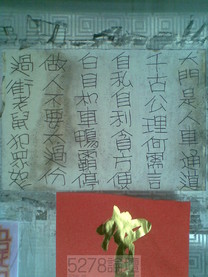 大門是人車通道
千古公理何需言
自私自利貪方便
白目机車鴨霸停
做人不要太過份
過街老鼠犯眾怒
5278論壇